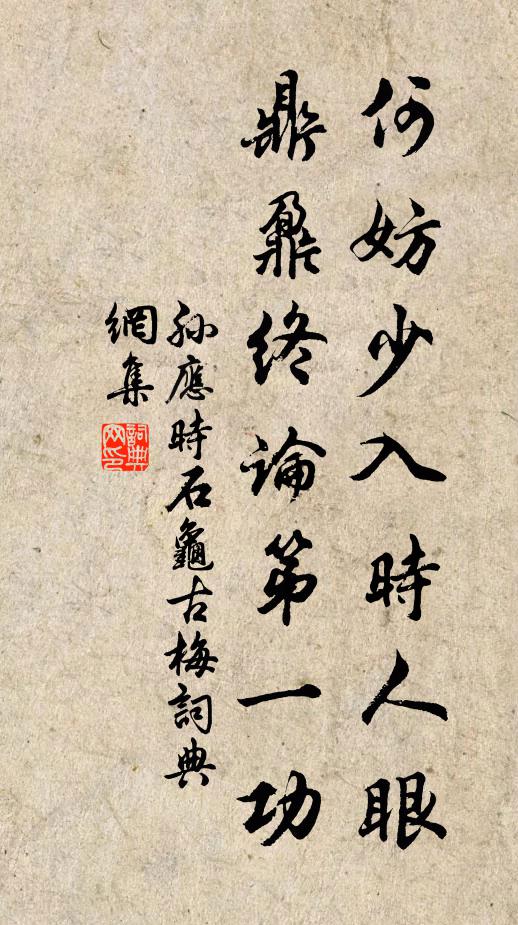 何妨少入時人眼
鼎鼐終論第一功
孫應時石龜古梅詞典
網集
詞典
网印